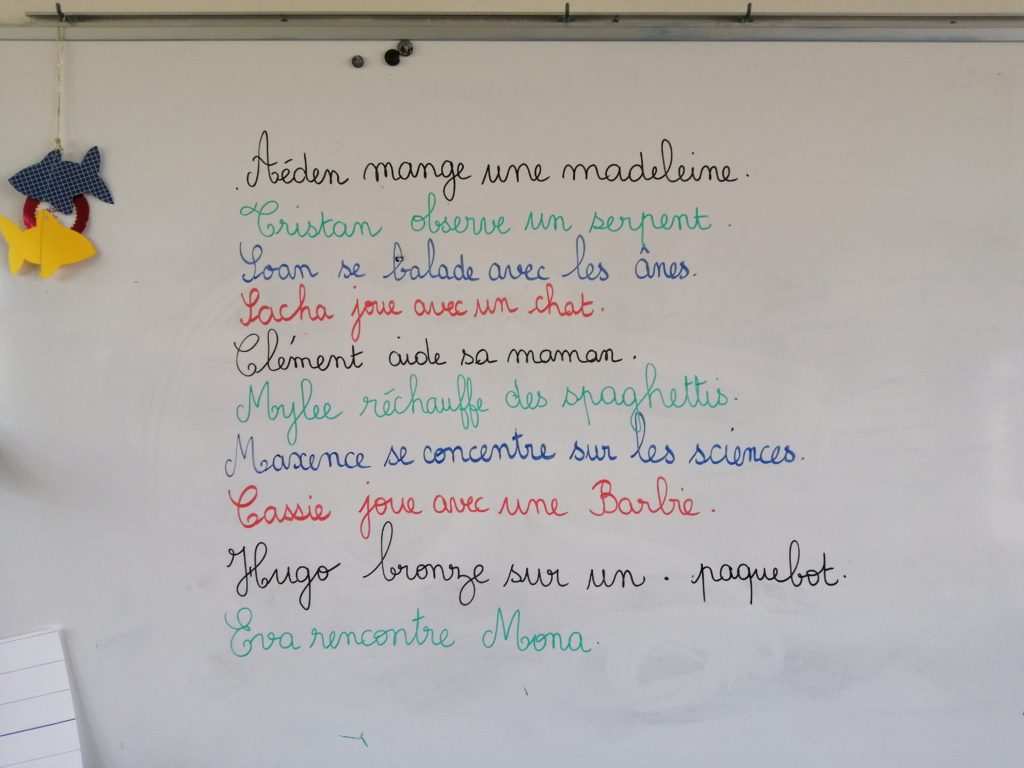 Aéden mange une madeleine.
Tristan observe un serpent.
Soan se balade avec les ânes.
Sacha joue avec un chat.
Clément aide sa maman.
Mylee réchauffe des spaghettis.
Maxence se concentre sur les sciences.
Cassie joue avec une Barbie.
Hugo bronze sur un . paquebot.
Eva rencontre Mona.